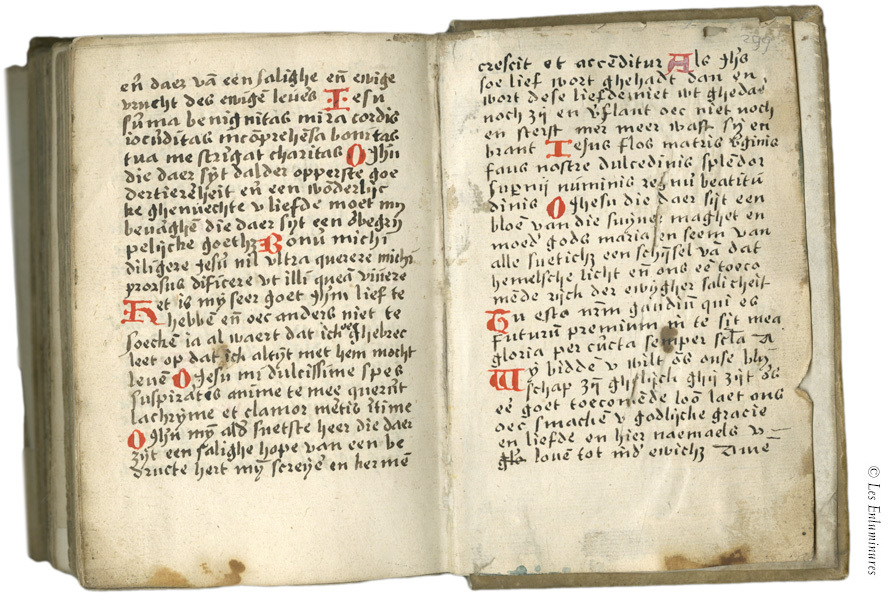 en̄ daer vā een salighe en̄ ewige
vrucht des ewigē levēs Iesu
sūma benignitas mira cordis
iocūditas incōprehēsa bonitas
tua me strīgat charitas O Ihū
die daer sijt d'alder opperste goe
dertierēheit en̄ een wōderlijc
ke ghenuechte v liefde moet my
bevāghē die daer sijt een ōbegrij
pelijcke goethz Bonū michi
diligere Jesū nil vltra querere michi
prorsus dificere vt illi queā vivere
Het is mȳ seer goet Ihm̄ lief te
hebbē en̄ oec anders niet te
soeckē ia al waert dat ick ghebrec
leet op dat ick altijt met hem mocht
levē O Iesu mi dulcissime spes
suspiratis anime te mee querūt
lachryme et clamor mētis ītime
O Ihū mȳ alder suetste heer die daer
zijt een salighe hope van een be
druckte hert mȳ screyē en kermē
299
crescit et accēditur Als Ihs̄
soe lief wort ghehadt dan en
wort dese liefde niet wt gheda
noch zij en v'flaut oec niet noch
en sterft mer meer wast sij en
brant Iesus flos matris v'ginis
faus nostre dulcedinis splēdor
sup'nij numinis regnū beatitu
dinis O Ihesu die daer sijt een
bloē van die suyner maghet en
moed' gods maria en seem van
alle sueticheit een schijnsel vā dat
hemelsche licht en̄ ons eē toeco
mēde rijck der ewigher salicheit
Tu esto nr̄m gaudiū qui es
futurum premium in te sit mea
gloria per cūcta semper secl̄a A
Wy biddē v wilt ōs onse blij
schap zijn ghelijck ghij zijt ōs
eē goet toecomēde loē laet ons
oec smackē v godlijcke gracie
en liefde en hier naemaels v
glo lovē tot īnd' ewichz Amē
© Les Enluminures